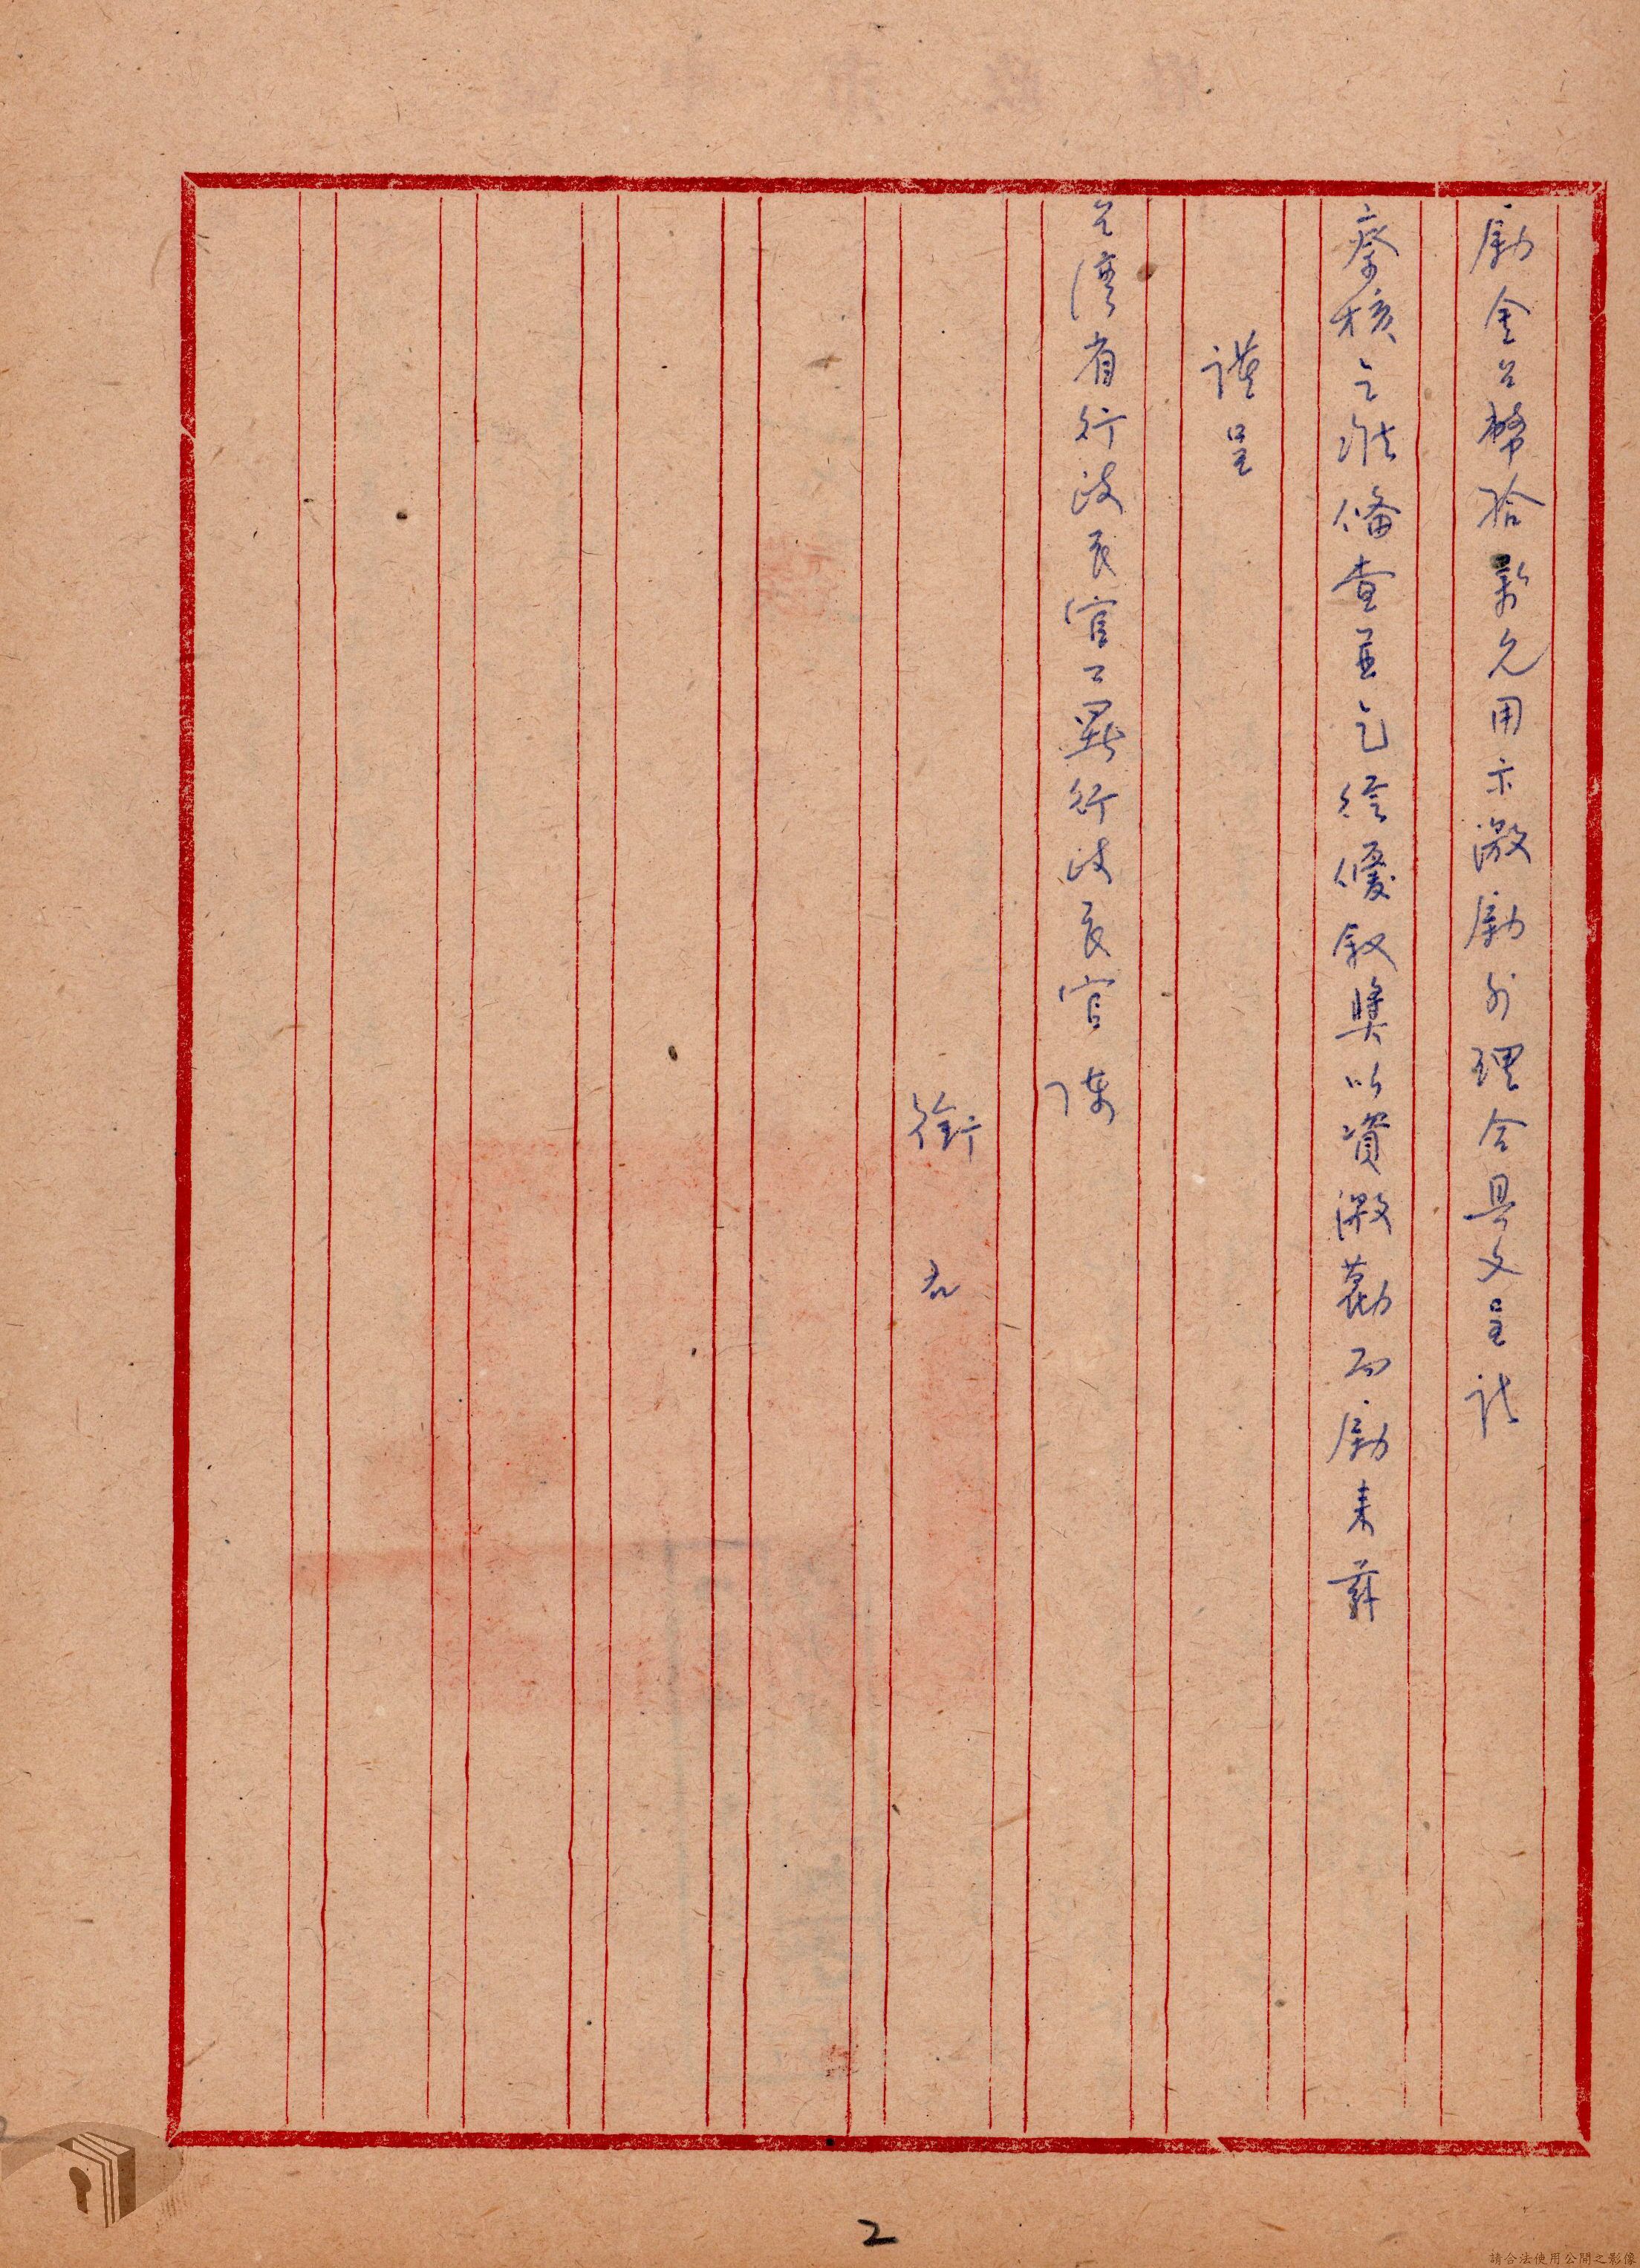 勵金台幣拾萬元用示激勵外理合具文呈請
察核乞准備查並乞從優敘獎以資激勸而勵來茲
謹呈
台灣省行政長官公署行政長官陳
銜名
2
請合法使用公開之影像